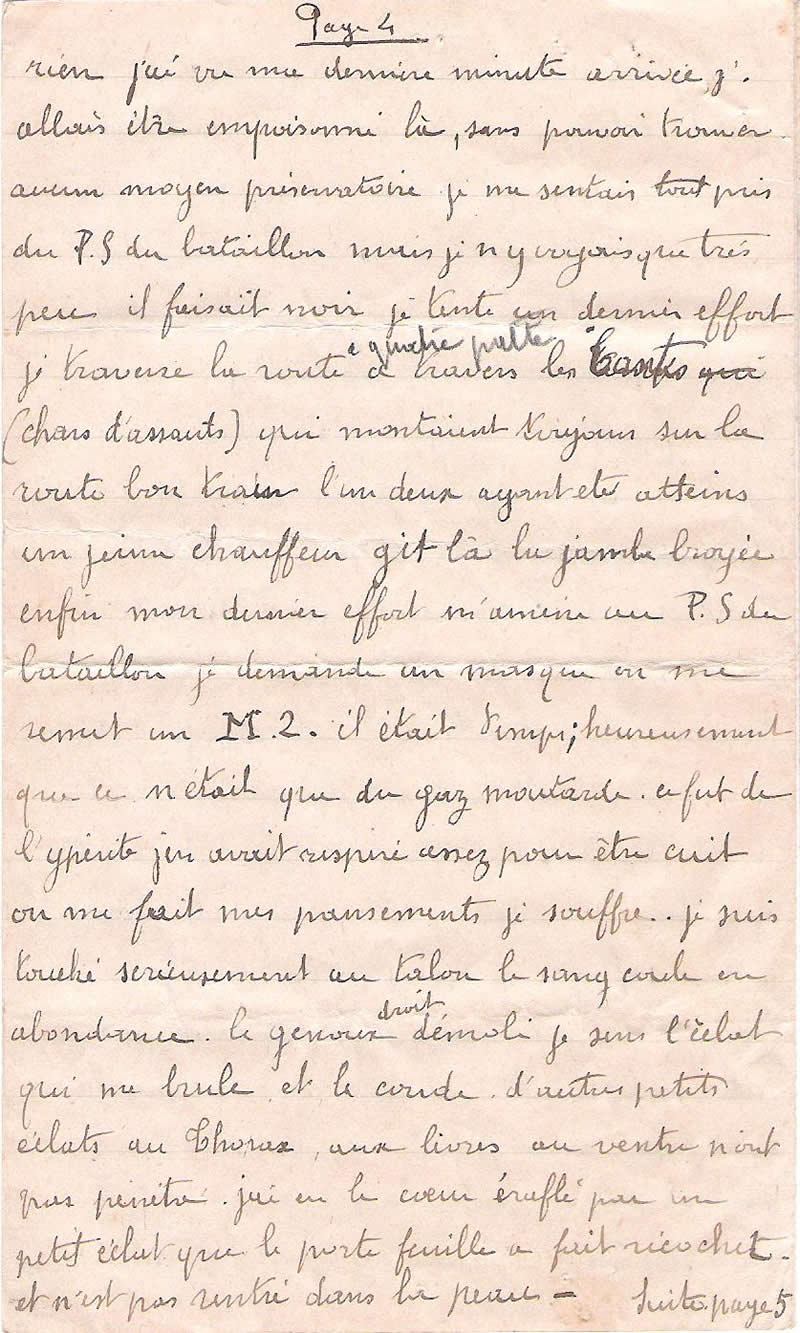 Page 4
rien j'ai vu ma dernière minute arrivée, j'.
allais être empoisonné là, sans pouvoir trouver
aucun moyen préservatoire je me sentais tout près
du P.S du bataillon mais je n y voyais que très
peu il faisait noir je tente un dernier effort
à quatre patte
je traverse la route à travers les tanks qui
(chars d'assauts) qui montaient toujours sur la
route bon train l'un deux ayant eté atteins
un jeune chauffeur git là la jambe broyée
enfin mon dernier effort m'amène au P.S du
bataillon je demande un masque on me
remet un M.2. il était temps; heureusement
que ce n'était que du gaz moutarde. ce fut de
l'ypérite j'en avait respiré assez pour être cuit
on me fait mes pansements je souffre.. je suis
touché serieusement au talon le sang coule en
droit
abondance. le genoux démoli je sens l'éclat
qui me brule et le coude. d'autres petits
éclats au Thorax, aux livres au ventre n'ont
pas penétré. j'ai eu le cœur éraflé par un
petit éclat que le porte feuille a fait ricochet.
et n'est pas rentré dans la peau –
Suite page 5